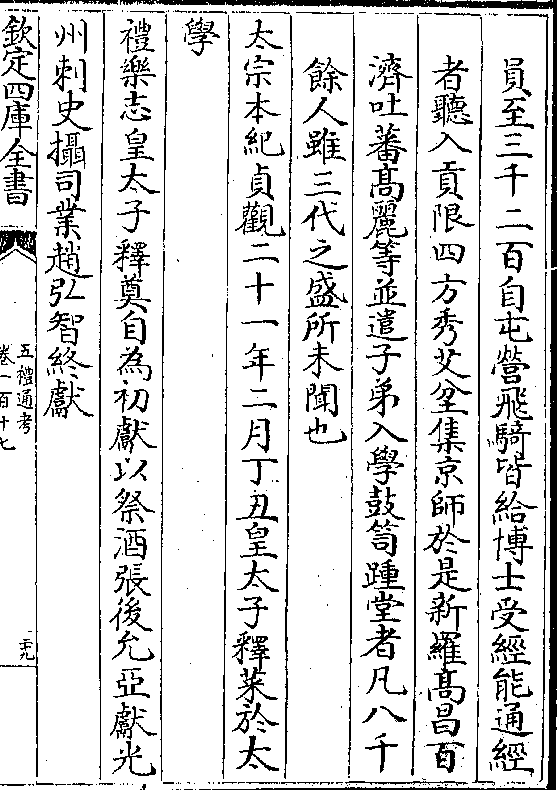 員至三千二百自屯營飛騎皆給博士受經能通經
者聽入貢限四方秀艾坌集京師於是新羅髙昌百
濟吐蕃髙麗等並遣子弟入學鼓笥踵堂者凡八千
餘人雖三代之盛所未聞也
太宗本紀貞觀二十一年二月丁丑皇太子釋菜於太
學
禮樂志皇太子釋奠自為初獻以祭酒張後允亞獻光
州刺史攝司業趙弘智終獻
欽定四庫全書
五禮通考
卷一百十七
三十九